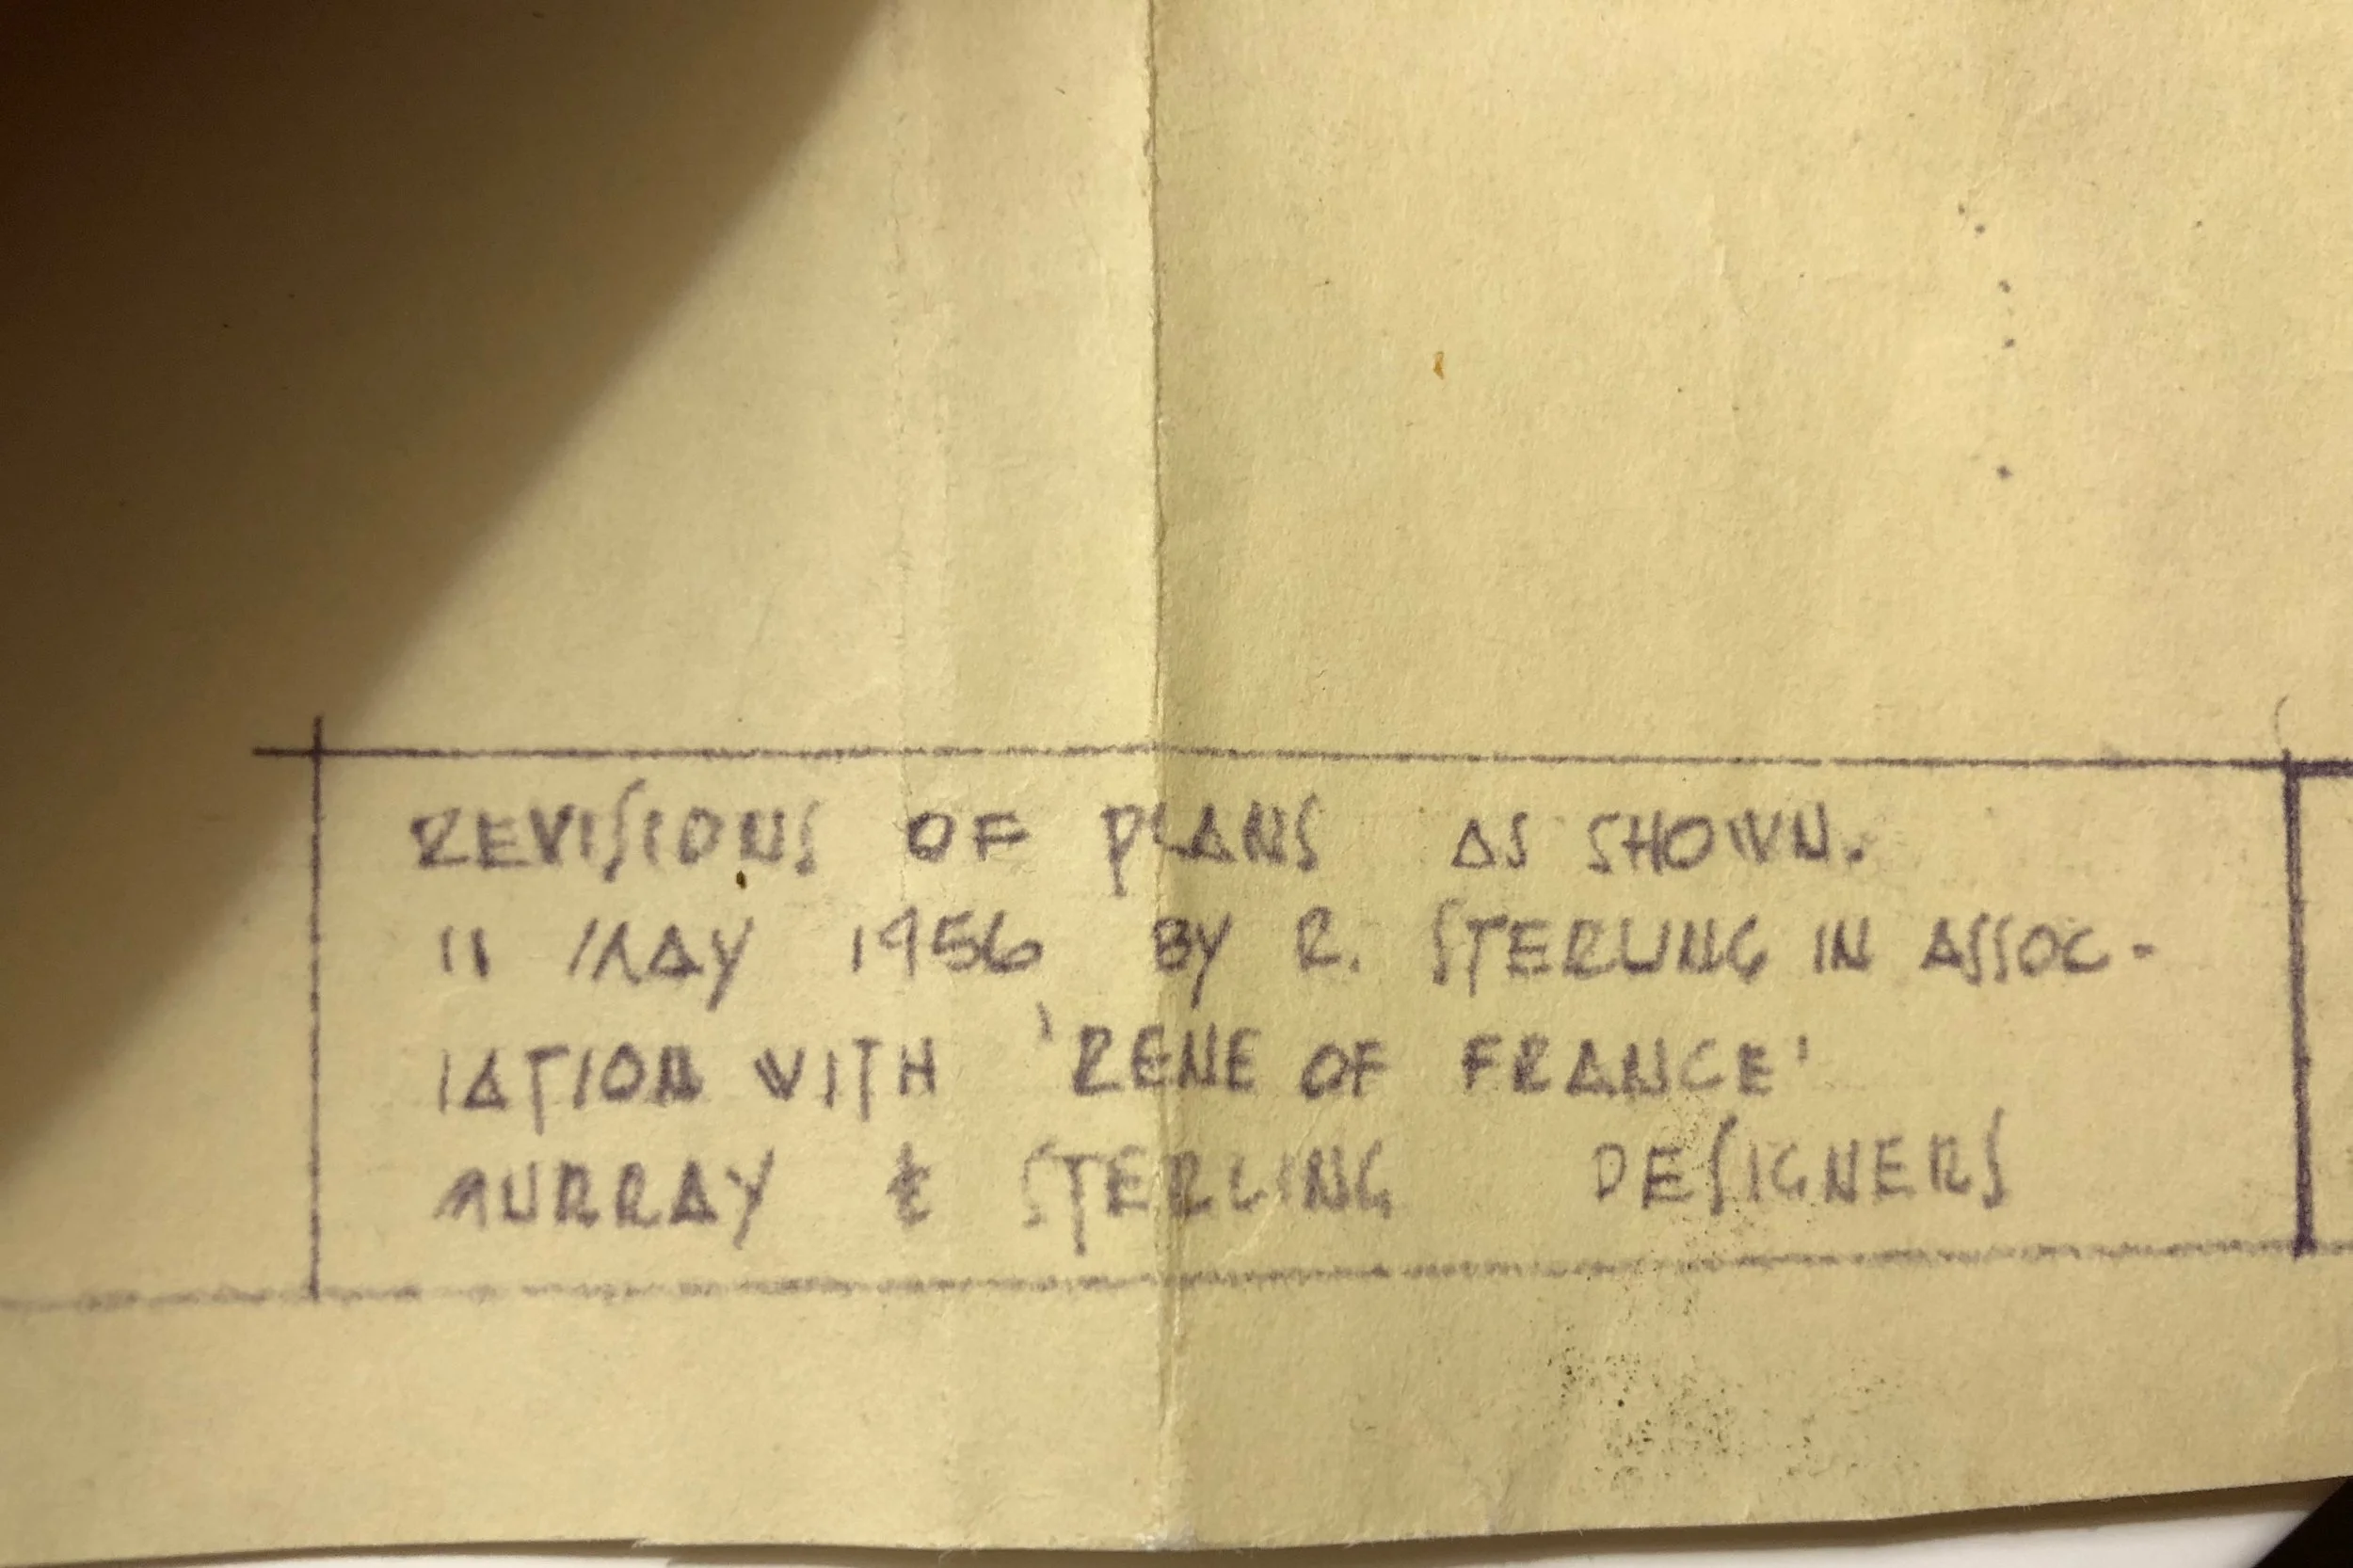 REVISIONS OF PLANS AS SHOWN.
11 MAY 1956 BY R. STERLING IN ASSOC-
IATION WITH 'RENE OF FRANCE'
MURRAY & STERLING DESIGNERS